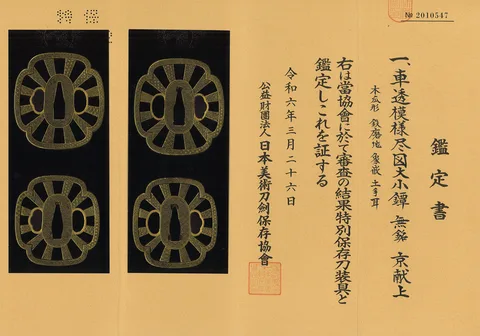 № 2010547
鑑定書
一、車透模様尽図大小鐔 無銘 京献上
木瓜形 鉄磨地 象嵌 土手耳
右は當協會に於て審査の結果特別保存刀装具と
鑑定しこれを証する
令和六年三月二十六日
公益財團法人 日本美術刀劍保存協會